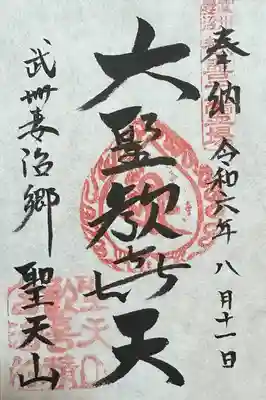 奉納
令和六年八月十一日
大聖歓㐂天
武州妻沼郷
聖天山